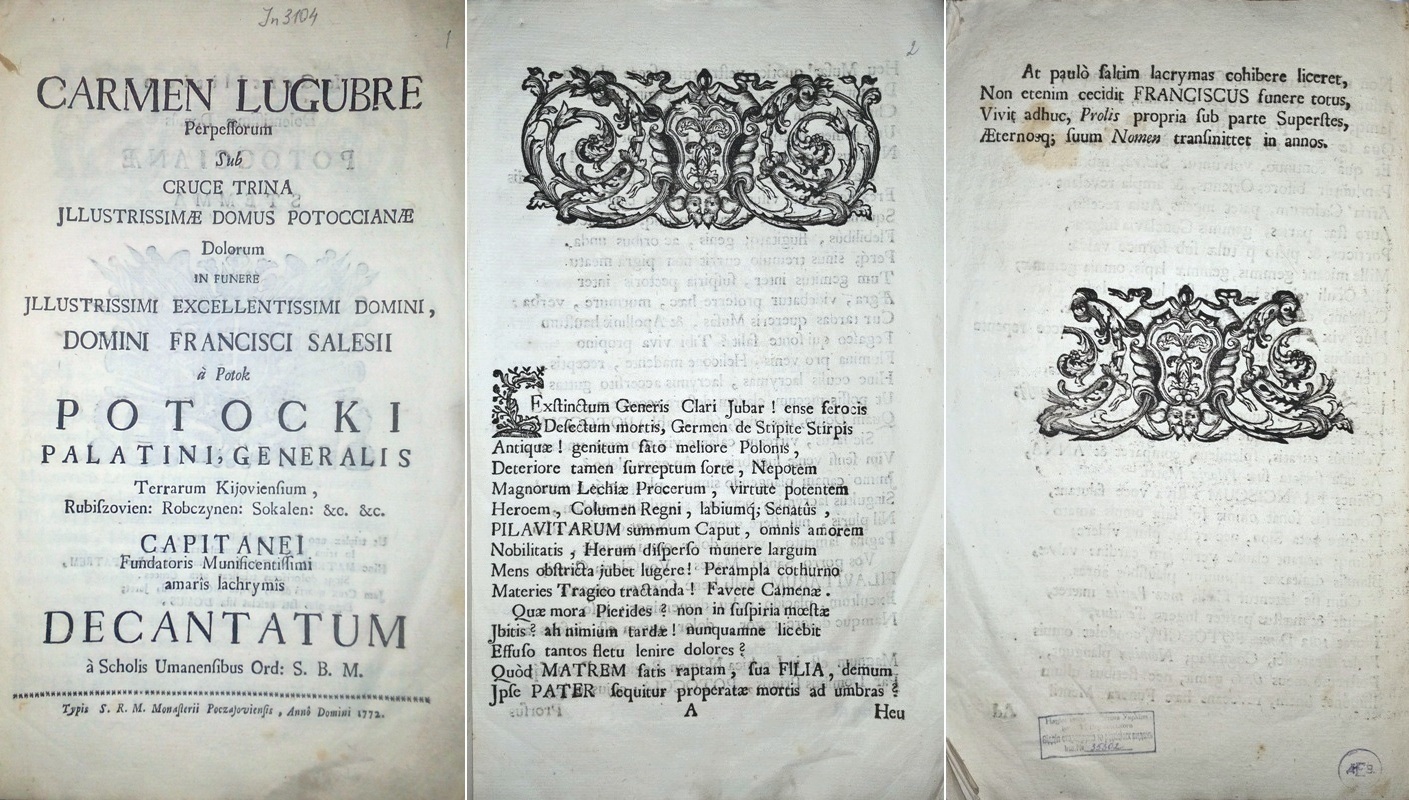 Jn 3104
1
CARMEN LUGUBRE
Perpeſſorum
Sub
CRUCE TRINA
JLLUSTRISSIMÆ DOMUS POTOCCIANÆ
Dolorum
IN FUNERE
JLLUSTRISSIMI EXCELLENTISSIMI DOMINI,
DOMINI FRANCISCI SALESII
à Potok
POTOCKI
PALATINI, GENERALIS
Terrarum Kijovienſium,
Rubiſzovien: Robczynen: Sokalen: &c. &c.
CAPITANEI
Fundatoris Munificentiſſimi
amaris lachrymis
DECANTATUM
à Scholis Umanenſibus Ord: S. B. M.
Typis S. R. M. Monaſterii Poczajovienſis, Annô Domini 1772.
2
Exſtinctum Generis Clari Jubar! ense ferocis
Deſectum mortis, Germen de Stipite Stirpis
Antiquæ! genitum fato meliore Polonis,
Deteriore tamen ſurreptum ſorte, Nepotem
Magnorum Lechiæ Procerum, virtute potentem
Heroem, Columen Regni, labiumq; Senatûs,
PILAVITARUM summum Caput, omnis amorem
Nobilitatis, Herum diſperſo munere largum
Mens obſtricta jubet lugere! Perampla cothurno
Materies Tragico tractanda! Favete Camenæ.
Quæ mora Pierides? non in ſuſpiria mœſtæ
Jbitis? ah nimium tardæ! nunquamne licebit
Effuſo tantos fletu lenire dolores?
Quòd MATREM fatis raptam, ſua FILIA, demum
Jpſe PATER ſequitur properatæ mortis ad umbras?
A
Heu
At paulò ſaltim lacrymas cohibere liceret,
Non etenim cecidit FRANCISCUS funere totus,
Vivit adhuc, Prolis propria ſub parte Superſtes,
Æternoſq; ſuum Nomen tranſmittet in annos.